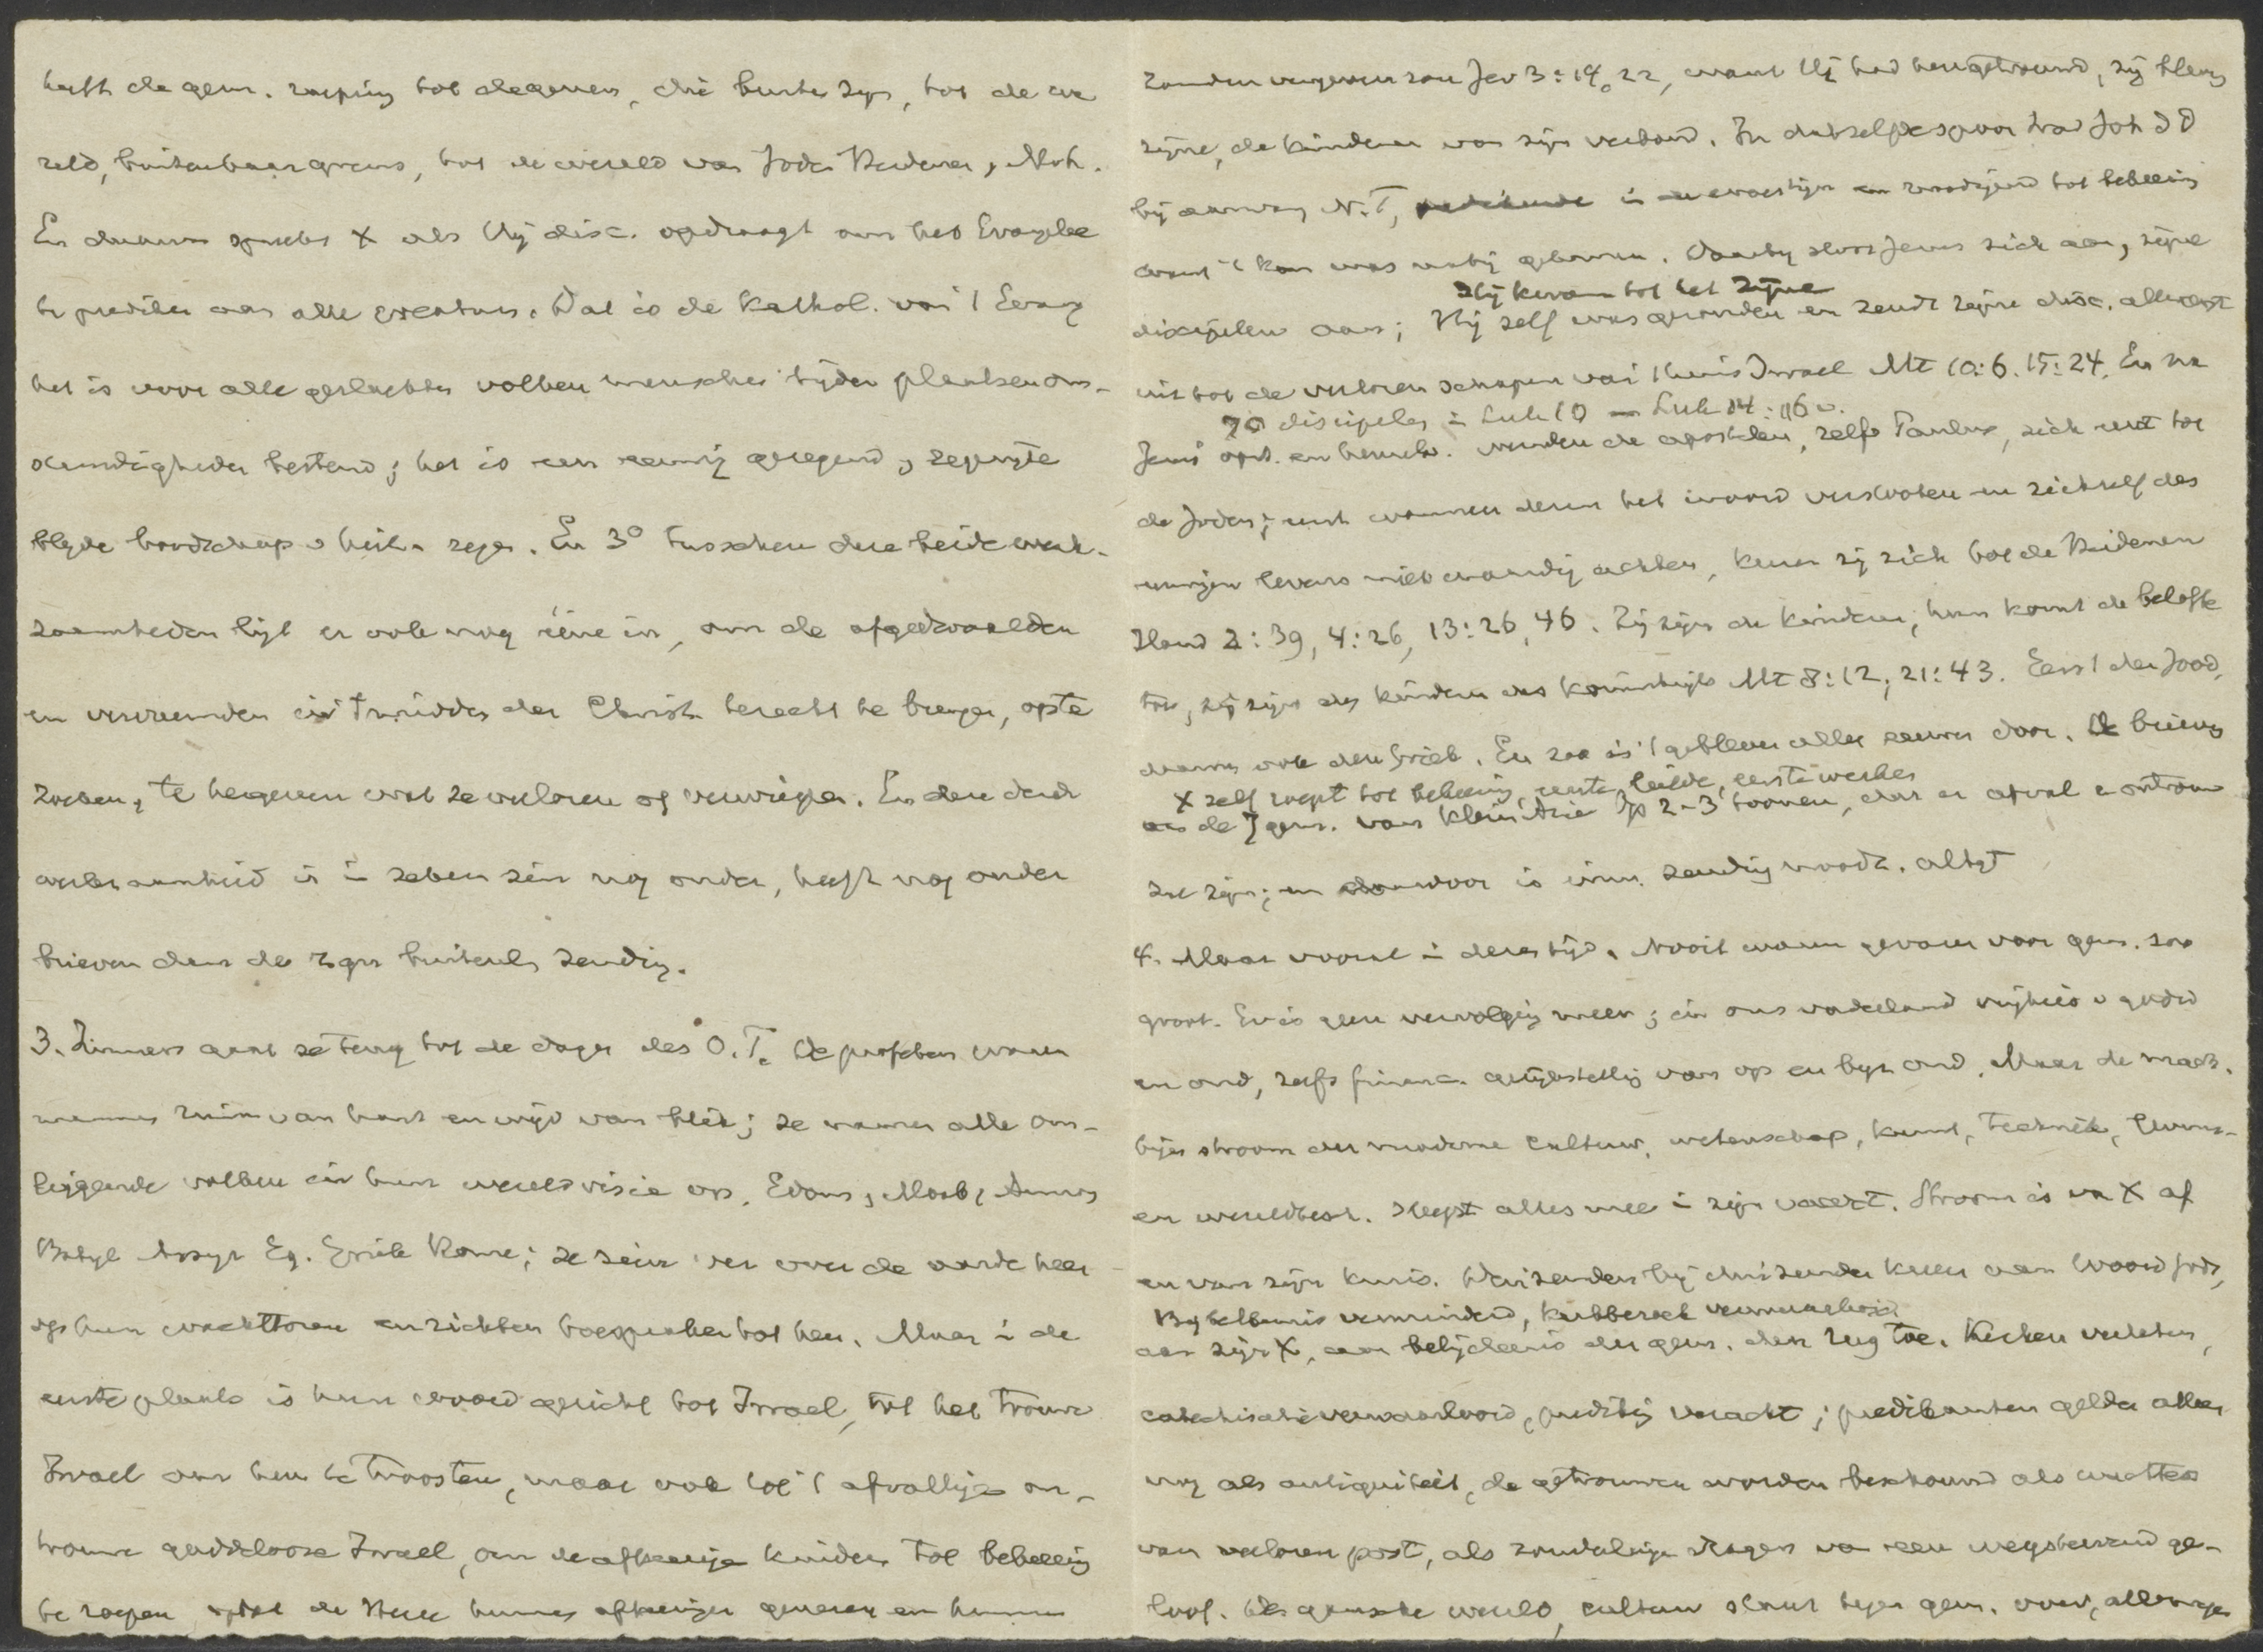 heeft de gem. roeping tot degenen, die buiten zijn, tot de we
reld, buiten haar grens, tot de wereld van Joden Heidenen, Moh.
En daarvan spreekt X als Hij disc. opdraagt om het Evangelie
te prediken aan alle creaturen. Dat is de Kathol. van 't Evang
het is voor alle geslachten volken menschen tijden plaatsen om-
standigheden bestemd; het is een eeuwig gezegend,
blijde boodschap v heil en zegen. En 3° tusschen deze beide werk-
zaamheden ligt er ook nog ééne in, om de afgedwaalden
en vervreemden in 't midden der Christenh. terecht te brengen, op te
zoeken, te hergeven wat ze verloren of verwierpen. En deze derde
werkzaamheid is in zekeren zin nog ouder, heeft nog ouder
brieven dan de zgn buitenl. zending.
3. Immers gaat ze terug tot de dagen des O.T. De profeten waren
mannen ruim van hart en wijd van blik; ze namen alle om-
liggende volken in hun wereldvisie op, Edom, Moab, Ammon
Babyl Assyr Eg. Griek Rome; ze zien ver over de aarde heen
op hun wachttoren en richten toespraken tot hen. Maar in de
eerste plaats is hun woord gericht tot Israel, tot het trouwe
Israel om hen te troosten, maar ook tot 't afvallige on-
trouwe goddelooze Israel, om de afkeerige kinderen tot bekeering
te roepen opdat de Heere hunne afkeeringen genezen en hunne
zonden vergeven zou Jer 3:14, 22, want Hij had hen getrouwd, zij bleven
zijne, de kinderen van zijn verbond. In datzelfde spoor trad Joh d D
bij aanvang N.T, in de woestijn en tot bekeering
want 't Kon was nabij gekomen. Daarbij sloot Jezus zich aan, zijne
Hij kwam tot het Zijne
discipelen aan; Hij zelf was gezonden en zendt zijne disc. allereerst
uit tot de verloren schapen van 't huis Israel Mt 10:6. 15:24. En na
70 discipelen in Luk 10 — Luk 14:16 v.
Jezus' opst. en hemelv. wenden de apostelen, zelfs Paulus, zich eerst tot
de Joden; eerst wanneer dezen het woord verstooten en zichzelf des
eeuwigen levens niet waardig achten, keeren zij zich tot de Heidenen
Hand 2:39, 4:26, 13:26, 46. Zij zijn de kinderen, hun komt de belofte
toe, zij zijn de kinderen des koninkrijks Mt 8:12, 21:43. Eerst de Jood,
daarna ook den Griek. En zoo is 't gebleven alle eeuwen door. De brieven
X zelf roept tot bekeering, eerste liefde, eerste werken
aan de 7 gem. van Klein Azie Op 2-3 toonen, dat er afval en ontrouw
zal zijn; en daarvoor is inw. zending noodz. altijd
4. Maar vooral in dezen tijd. Nooit waren gevaren voor gem. zoo
groot. Er is geen vervolging meer; in ons vaderland vrijheid v godsd
en ond, zelfs financ. gelijkstelling van op en byz ond. Maar de mach-
tige stroom der moderne cultuur, wetenschap, kunst, techniek, levens-
en wereldbesch. sleept alles mee in zijn vaart. Stroom is van X af
en van zijn kruis. Duizenden bij duizenden keeren aan Woord Gods,
Bijbelkennis verminderd, kerkbezoek verwaarloosd
aan zijn X, aan belijdenis der gem. den rug toe. Kerken verlaten,
catechisatie verwaarloosd, prediking veracht; predikanten gelden alleen
nog als antiquiteit, de getrouwen worden beschouwd als wachters
van verloren post, als zonderlinge dragers van een wegstervend ge-
loof. De gansche wereld, cultuur staat tegen gem. over,